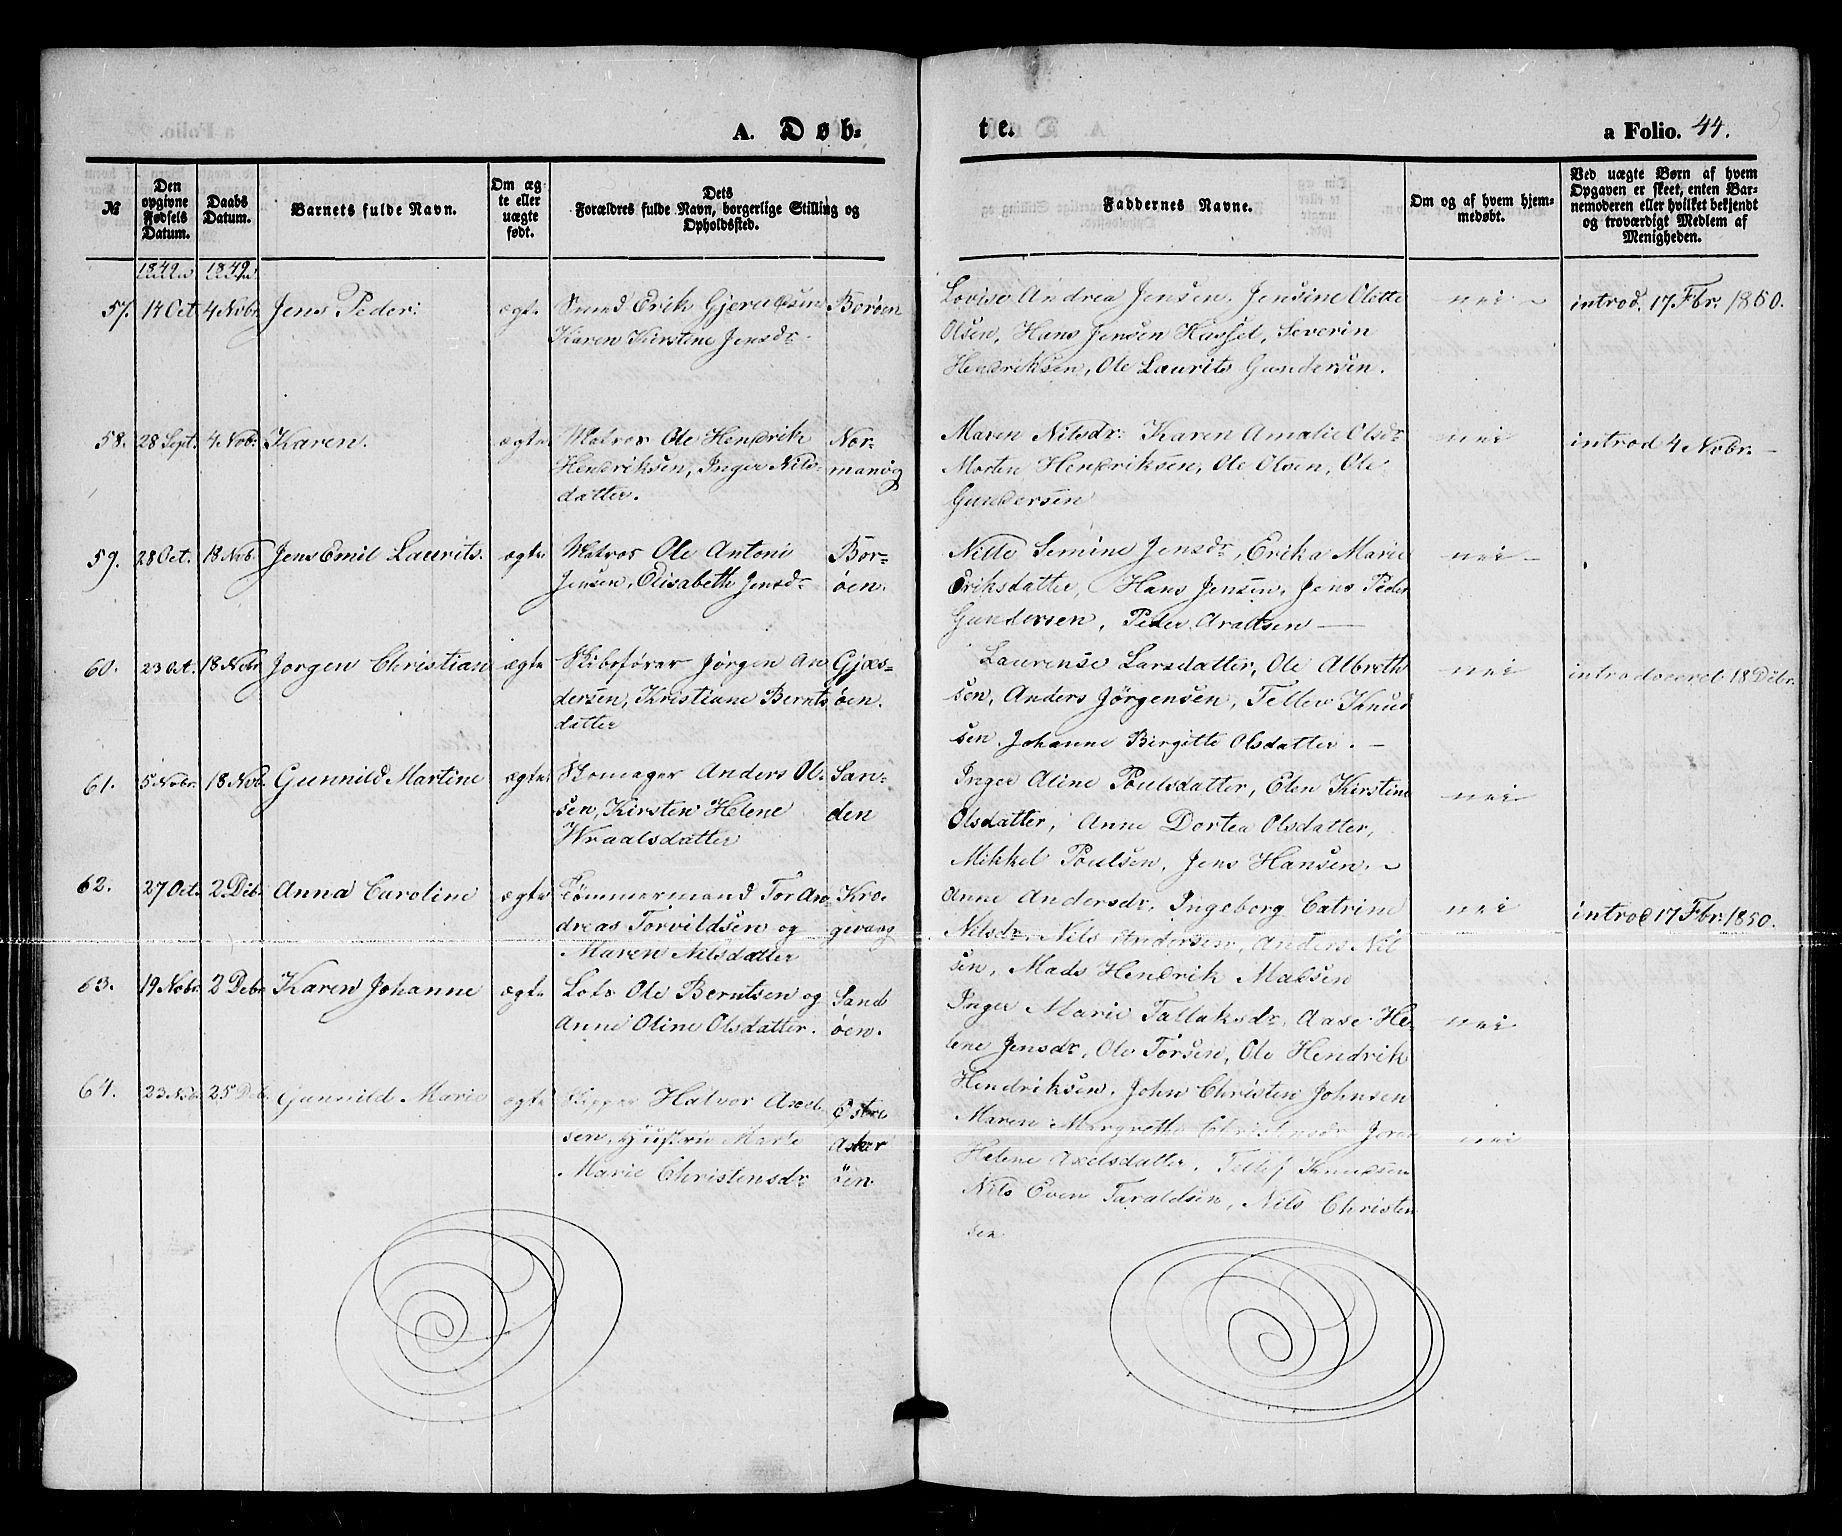 A. Døb-
te.
a Folio. 44.
№
Den opgivne Fødsels Datum.
Daabs Datum.
Barnets fulde Navn.
Om ægte eller uægte født.
Dets Forældres fulde Navn, borgerlige Stilling og Opholdssted.
Faddernes Navne.
Om og af hvem hjemmedøbt.
Ved uægte Børn af hvem Opgaven er skeet, enten Barnemoderen eller hvilket bekjendt og troværdigt Medlem af Menigheden.
1849 1849
57. 14 Oct. 4 Nobr. Jens Peder. ægte Smed Erik Gjerulfsen Borøen
Karen Kirstine Jensdr.
Lovise Andrea Jensen. Jensine Olette
Olsen, Hans Jensen Hassel, Severin
Hendriksen, Ole Laurits Gundersen.
nei introd. 17 Fbr. 1850.
58. 28 Sept. 4 Nob. Karen. ægte Matros Ole Hendrik Nor-
Hendriksen, Inger Nils- manvig
datter.
Maren Nilsdr. Karen Amalie Olsdr
Morten Hendriksen, Ole Olsen, Ole
Gundersen
nei introd 4 Nobr.
59. 28 Oct. 18 Nob. Jens Emil Laurits. ægte Matros Ole Antoni Bor-
Jensen, Elisabeth Jensdr. øen.
Nille Semine Jensdr, Erika Marie
Eriksdatter, Hans Jensen, Jens Peder
Gundersen, Peder
nei
60. 23 Oct. 18 Nobr Jorgen Christian ægte Skibsfører Jørgen An Gjæs-
dersen, Kristiane Bernts øen.
datter
Laurense Larsdatter, Ole Albreth
sen, Anders Jørgensen, Tellev Knud
sen. Johanne Birgitte Olsdatter.
nei introduceret 18 Debr.
61. 5 Nobr. 18 Nob. Gunnild Martine ægte Skomager Anders Ol- San-
sen, Kirsten Helene den
Wraalsdatter
Inger Aline Poulsdatter, Elen Kirstine
Olsdatter, Anne Dortea Olsdatter,
Mikkel Poulsen, Jens Hansen.
nei
62. 27 Oct. 2 Deb. Anna Caroline ægte Tømmermand Tor An- Kro-
dreas Torvildsen og gevaag
Maren Nilsdatter
Anne Andersdr. Ingeborg Catrine
Nilsdr. Nils Andersen, Anders Nil
sen, Mads Hendrik Madsen
nei introd 17 Fbr. 1850.
63. 19 Nobr. 2 Debr Karen Johanne ægte Lods Ole Berntsen og Sand
Anne Oline Olsdatter. øen.
Inger Marie Tallaksdr. Aase He-
lene Jensdr, Ole Torsen, Ole Hendrik
Hendriksen. John Christen Johnsen
nei
64. 23 Nob. 25 Deb. Gunnild Marie ægte Skipper Halvor Axel- Østre
sen, Hustru Marte Asker
Marie Christensdr øen
Maren Margrethe Christensdr
Helene Axelsdatter. Tellef Knudsen
Nils Even Taraldsen, Nils Christen
sen
nei